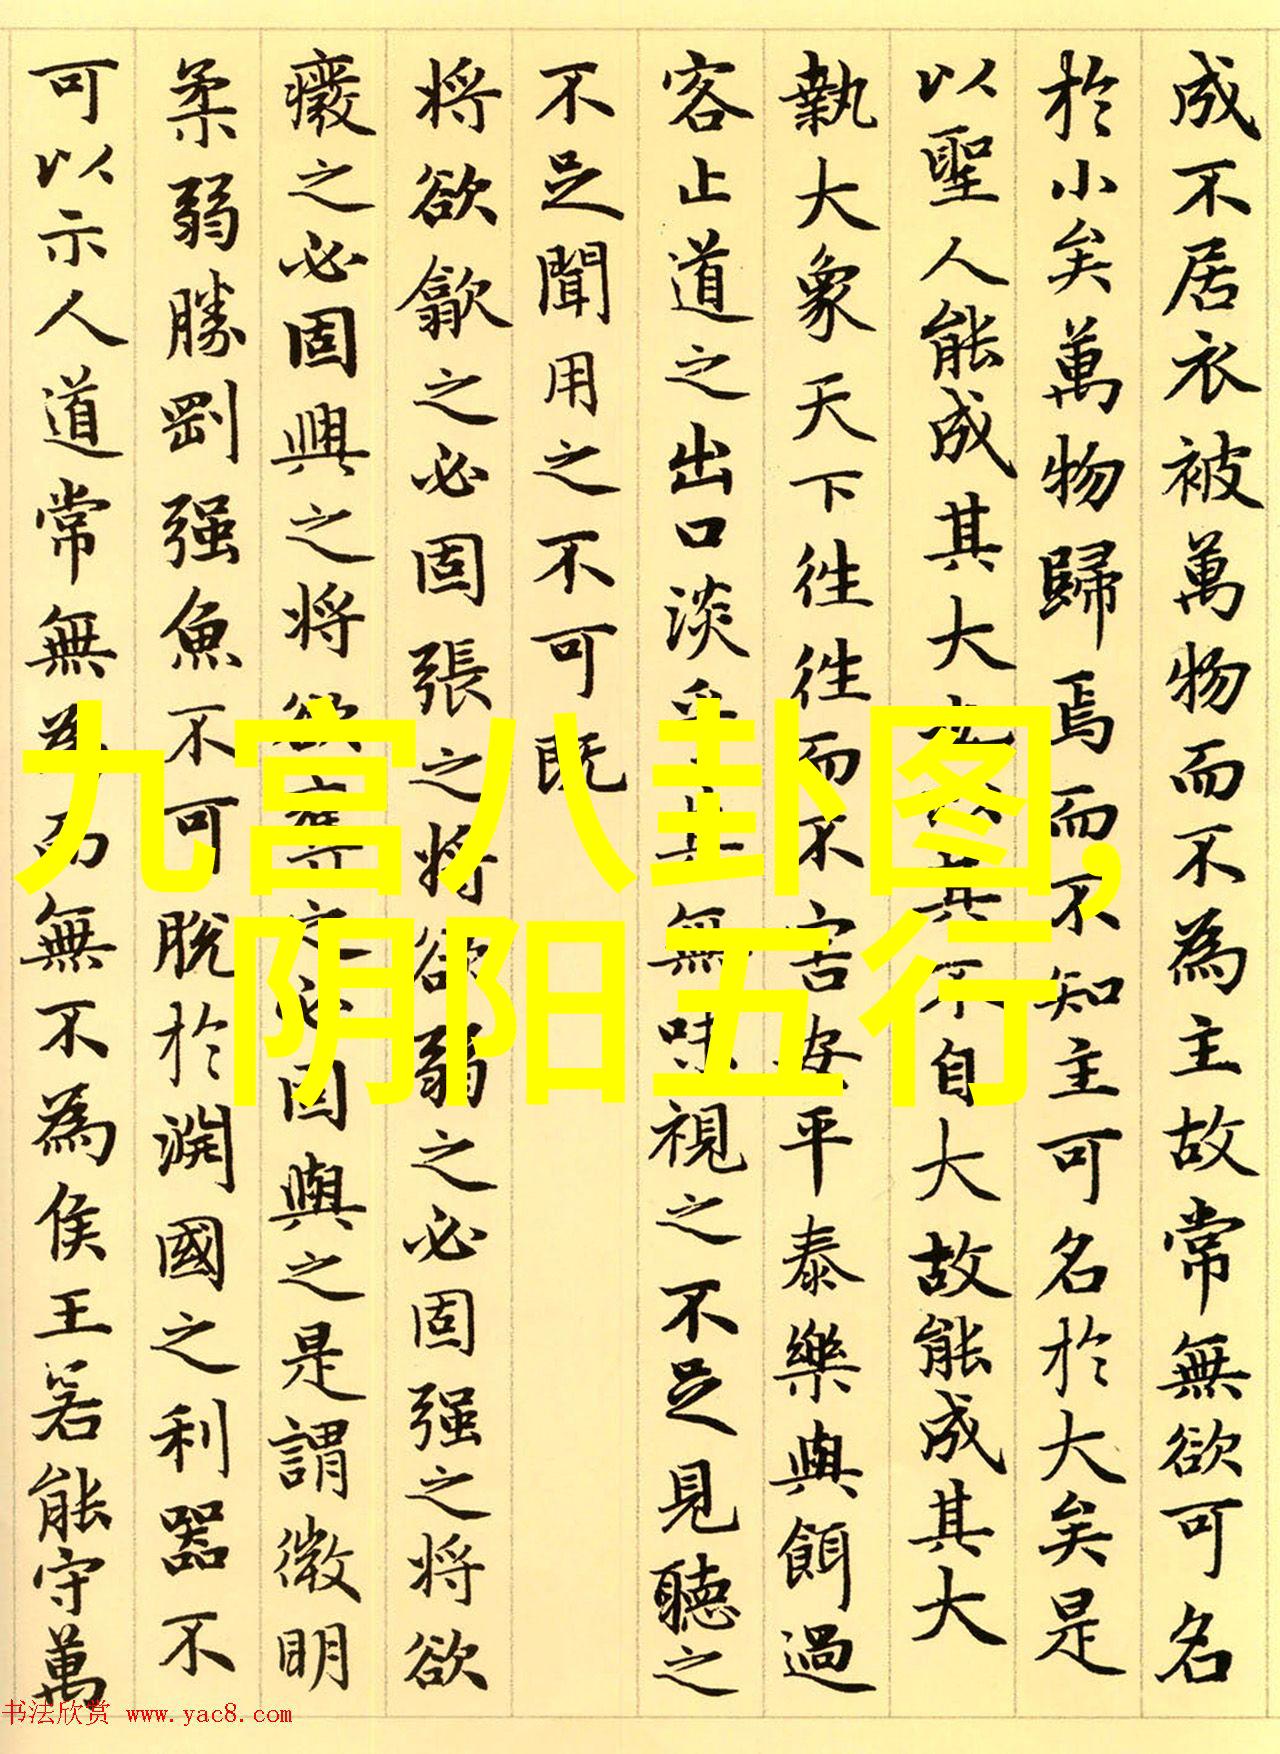 成不居衣被萬物而不為主故常無欲可名
於小矣萬物歸焉而不知主可名於大矣是
以聖人能成其大也以其不自大故能成其大
執大象天下往往而不害安平泰樂與餌過
客止道之出口淡乎其無味視之不足見聽之
不足聞用之不可既
将欲歙之必固張之将欲弱之必固强之将欲
癈之必固興之将欲奪之必固與之是謂微明
柔弱勝剛强魚不可脫於淵國之利器不
可以示人道常無為而無不為侯王若能守萬
九宫八卦图,
阴阳五行
书法欣赏 www.yac8.com